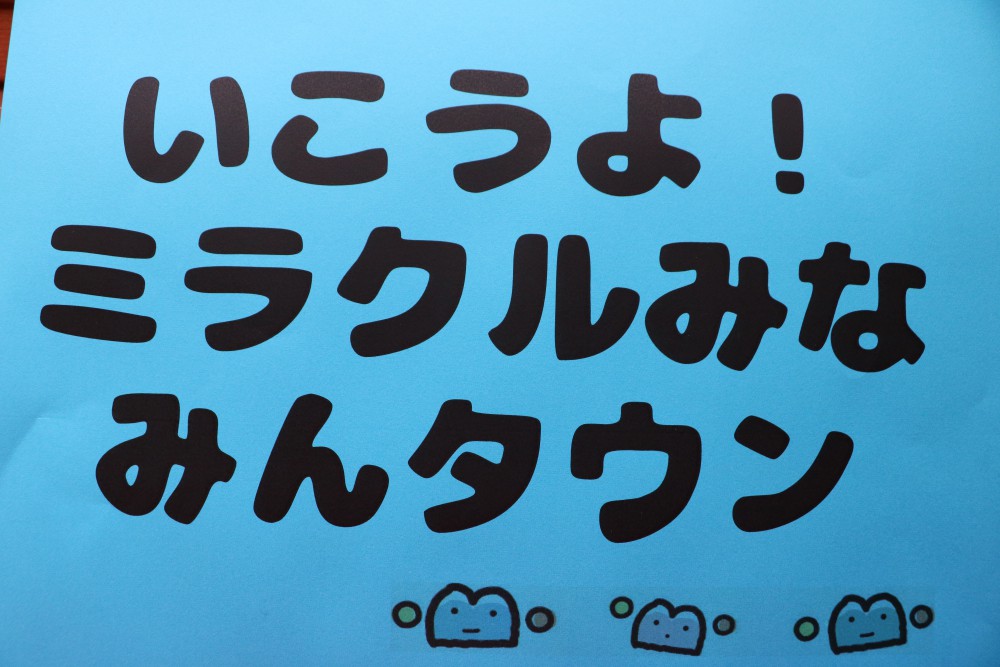 いこうよ！
ミラクルみな
みんタウン